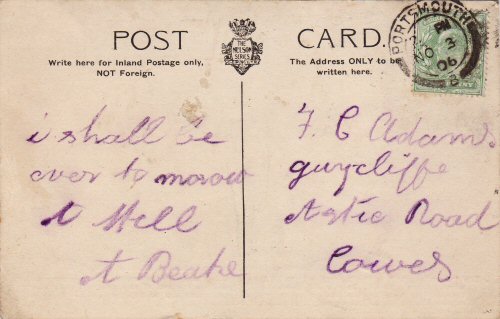 POST CARD.
THE NELSON SERIES
Write here for Inland Postage only,
NOT Foreign.
The Address ONLY to be
written here.
PORTSMOUTH
NO 3
06
i shall be
over to morow
A Hell
A Beake
F C Adams
guycliffe
Road
Cowes